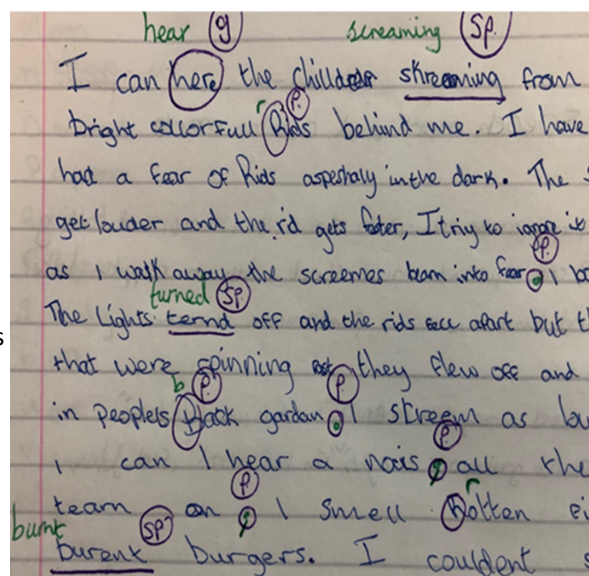 hear g screaming Sp.
I can here the childer skreaming from
r P.
bright collorfull Rids behind me. I have
had a fear of Rids aspeshaly in the dark. The
get louder and the rid gets fater, I triy to ignore it
P.
as I walk away the screemes team into fear. I
turned Sp.
The Lights ternd off and the rids fell apart but
that were spinning they flew off and
b P. P.
in peoplels Black gardan. I streem as
P.
I can I hear a nois, all the
P. r
team on , I smell Rotten
burnt sp
burent burgers. I couldent
s